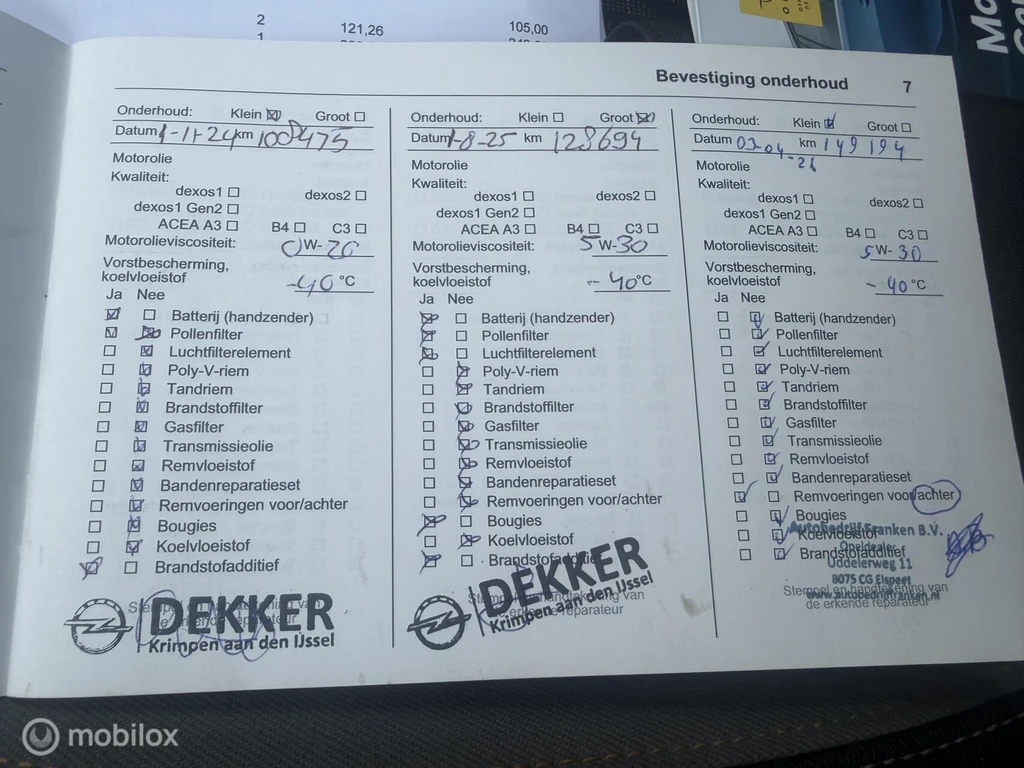 2
121,26
105,00
1
Bevestiging onderhoud 7
Onderhoud: Klein Groot
Datum 1-11-24 km 108475
Motorolie
Kwaliteit:
dexos1 dexos2
dexos1 Gen2
ACEA A3 B4 C3
Motorolieviscositeit: 0W-20
Vorstbescherming,
koelvloeistof -40 °C
Ja Nee
Batterij (handzender)
Pollenfilter
Luchtfilterelement
Poly-V-riem
Tandriem
Brandstoffilter
Gasfilter
Transmissieolie
Remvloeistof
Bandenreparatieset
Remvoeringen voor/achter
Bougies
Koelvloeistof
Brandstofadditief
Stempel en handtekening van
de erkende reparateur
DEKKER
Krimpen aan den IJssel
Onderhoud: Klein Groot
Datum 1-8-25 km 128694
Motorolie
Kwaliteit:
dexos1 dexos2
dexos1 Gen2
ACEA A3 B4 C3
Motorolieviscositeit: 5W-30
Vorstbescherming,
koelvloeistof -40°C
Ja Nee
Batterij (handzender)
Pollenfilter
Luchtfilterelement
Poly-V-riem
Tandriem
Brandstoffilter
Gasfilter
Transmissieolie
Remvloeistof
Bandenreparatieset
Remvoeringen voor/achter
Bougies
Koelvloeistof
Brandstofadditief
Stempel en handtekening van
de erkende reparateur
DEKKER
Krimpen aan den IJssel
Onderhoud: Klein Groot
Datum 03-04-26 km 149194
Motorolie
Kwaliteit:
dexos1 dexos2
dexos1 Gen2
ACEA A3 B4 C3
Motorolieviscositeit: 5W-30
Vorstbescherming,
koelvloeistof -40°C
Ja Nee
Batterij (handzender)
Pollenfilter
Luchtfilterelement
Poly-V-riem
Tandriem
Brandstoffilter
Gasfilter
Transmissieolie
Remvloeistof
Bandenreparatieset
Remvoeringen voor/achter
Bougies
Koelvloeistof
Brandstofadditief
Autobedrijf Franken B.V.
Opeldealer
Uddelerweg 11
8075 CG Elspeet
www.autobedrijffranken.nl
Stempel en handtekening van
de erkende reparateur
mobilox